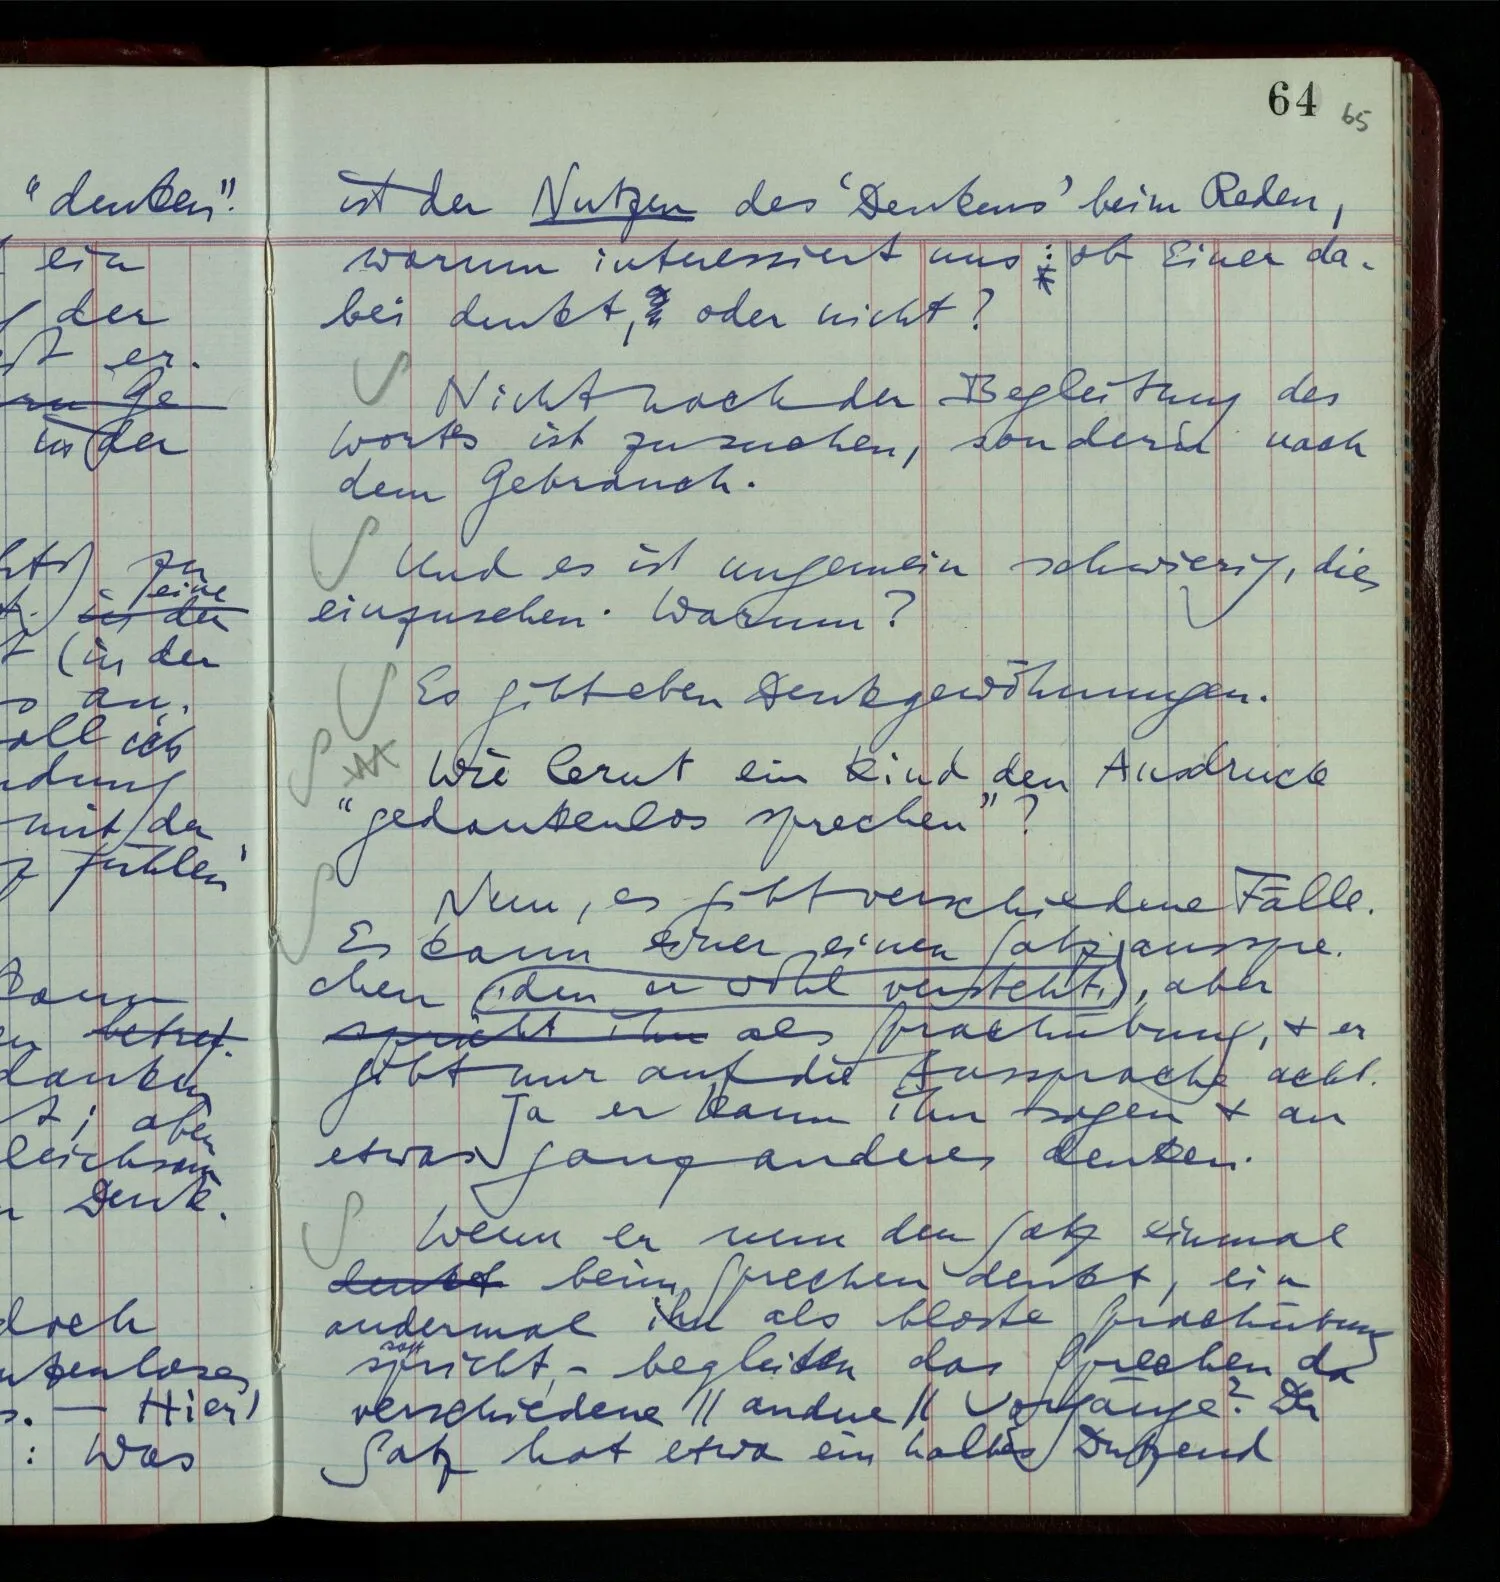 64 65
"denken".
ein
der
er.
Ge
in der
zu
eine
in der
(in der
an.
soll ich
mit der
fühlen
betref-
aber
gleichsam
Denk-
doch
— Hier
: Was
ist der Nutzen des 'Denkens' beim Reden,
warum interessiert uns : ob Einer da-
bei denkt, oder nicht?
Nicht nach der Begleitung des
Worts ist zu suchen, sondern nach
dem Gebrauch.
Und es ist ungemein schwierig, dies
einzusehen. Warum?
Es gibt eben Denkgewöhnungen.
Wie lernt ein Kind den Ausdruck
"gedankenlos sprechen"?
Nun, es gibt verschiedene Fälle.
Es kann einer einen Satz, ausspre-
chen (den er wohl versteht,), aber
spricht ihn als Sprachübung, + er
gibt nur auf die Aussprache acht.
Ja er kann ihn sagen + an
etwas ganz anderes denken.
Wenn er nun den Satz einmal
denkt beim Sprechen denkt, ein
andermal ihn als bloße Sprachübung
spricht, – begleiten das Sprechen da
verschiedene || andere || Vorgänge? Der
Satz hat etwa ein halbes Dutzend